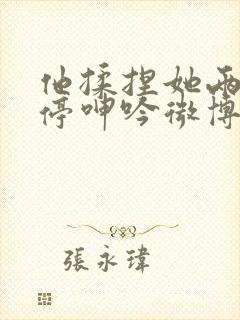 他揉捏她兩
停呻吟微博
張永瑋